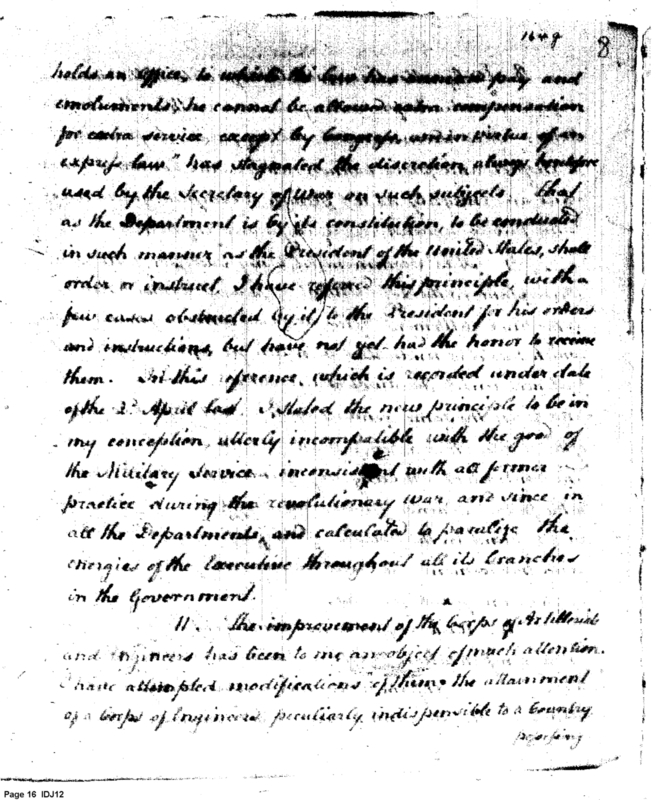 8
holds an office, to which the law has annexed pay and
emoluments, he cannot be allowed extra compensation
for extra service, except by Congress, and in virtue of an
express law" has stagnated the discretion always heretofore
used by the Secretary of War on such subjects. That
as the Department is by its constitution, to be conducted
in such manner as the President of the United States, shall
order or instruct, I have referred this principle, with a
few cases obstructed by it, to the President for his orders
and instructions, but have not yet had the honor to receive
them. In this reference, which is recorded under date
of the 2d April last. I stated the new principle to be in
my conception, utterly incompatible with the good of
the Military Service, inconsistent with all former
practice during the revolutionary war, and since in
all the Departments, and calculated to paralize the
energies of the Executive throughout all its branches
in the Government.
11. The improvement of the Corps of Artillerists
and Engineers has been to me an object of much attention.
I have attempted modifications of them, the attainment
of a Corps of Engineers, peculiarly indispensible to a Country
possessing
Page 16 IDJ12